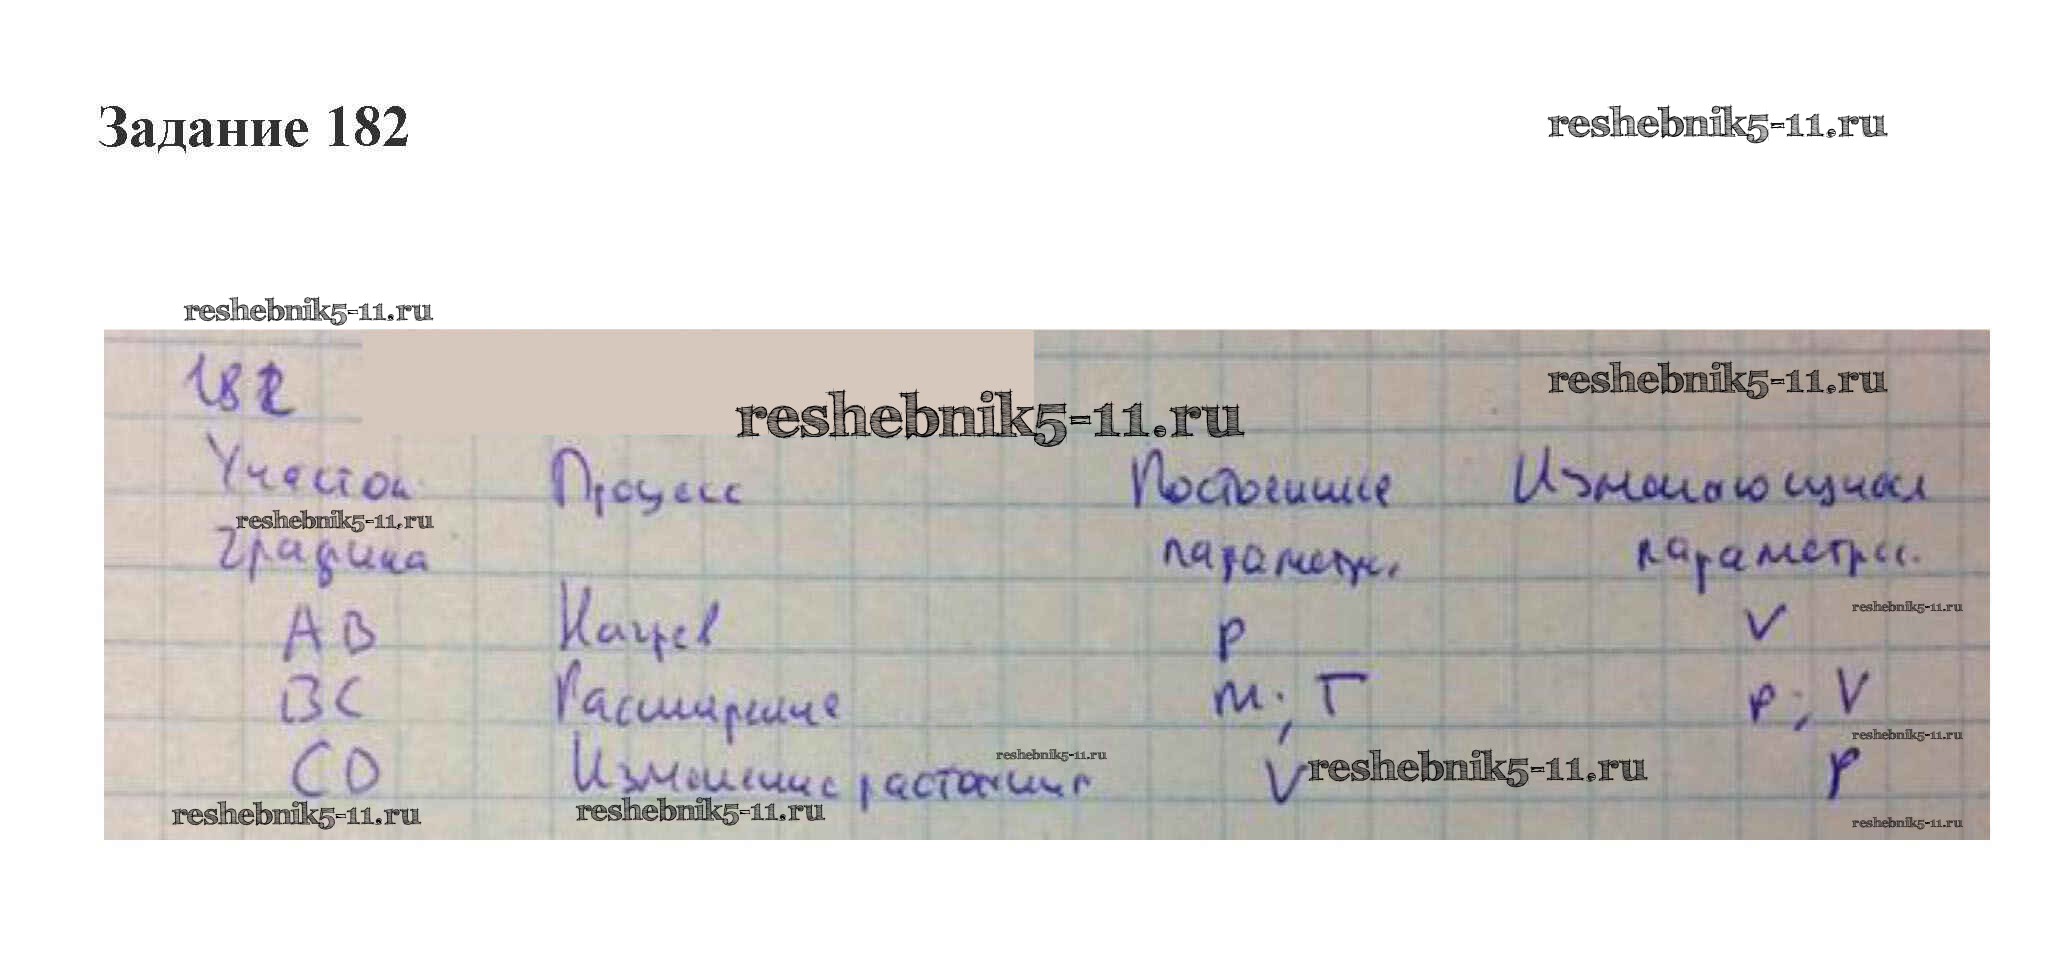 Задание 182
reshebnik5-11.ru
reshebnik5-11.ru
182
reshebnik5-11.ru
reshebnik5-11.ru
Участок Процесс Постоянные Изменяющиеся
reshebnik5-11.ru
графика параметры параметры.
AB Нагрев p V
reshebnik5-11.ru
BC Расширение m; T p; V
reshebnik5-11.ru
CD Изменение V p
reshebnik5-11.ru
reshebnik5-11.ru
reshebnik5-11.ru
reshebnik5-11.ru
reshebnik5-11.ru